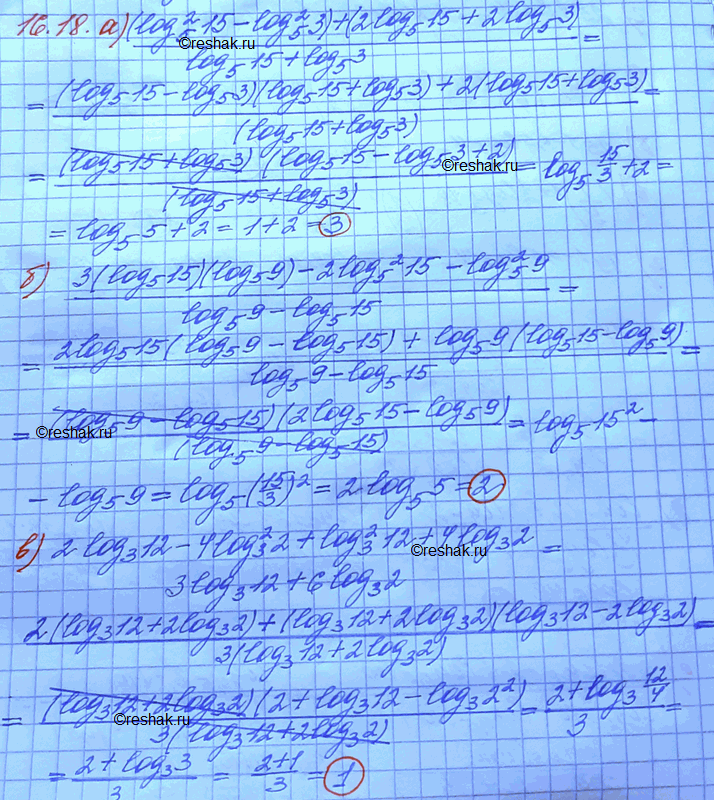 16.18. а) (log₅²15 − log₅²3) + (2log₅15 + 2log₅3) =
©reshak.ru
log₅15 + log₅3
= (log₅15 − log₅3)(log₅15 + log₅3) + 2(log₅15 + log₅3) =
(log₅15 + log₅3)
= (log₅15 + log₅3) (log₅15 − log₅3 + 2) = log₅ 15/3 + 2 =
©reshak.ru
(log₅15 + log₅3)
= log₅5 + 2 = 1 + 2 = 3
б) 3(log₅15)(log₅9) − 2log₅²15 − log₅²9 =
log₅9 − log₅15
= 2log₅15(log₅9 − log₅15) + log₅9(log₅15 − log₅9) =
log₅9 − log₅15
= (log₅9 − log₅15)(2log₅15 − log₅9) = log₅15² −
©reshak.ru
(log₅9 − log₅15)
− log₅9 = log₅(15/3)² = 2log₅5 = 2
в) 2log₃12 − 4log₃²2 + log₃²12 + 4log₃2 =
©reshak.ru
3log₃12 + 6log₃2
2(log₃12 + 2log₃2) + (log₃12 + 2log₃2)(log₃12 − 2log₃2) =
3(log₃12 + 2log₃2)
= (log₃12 + 2log₃2)(2 + log₃12 − log₃2²) = 2 + log₃ 12/4 =
©reshak.ru
3(log₃12 + 2log₃2) 3
= 2 + log₃3 = 2+1 = 1
3 3